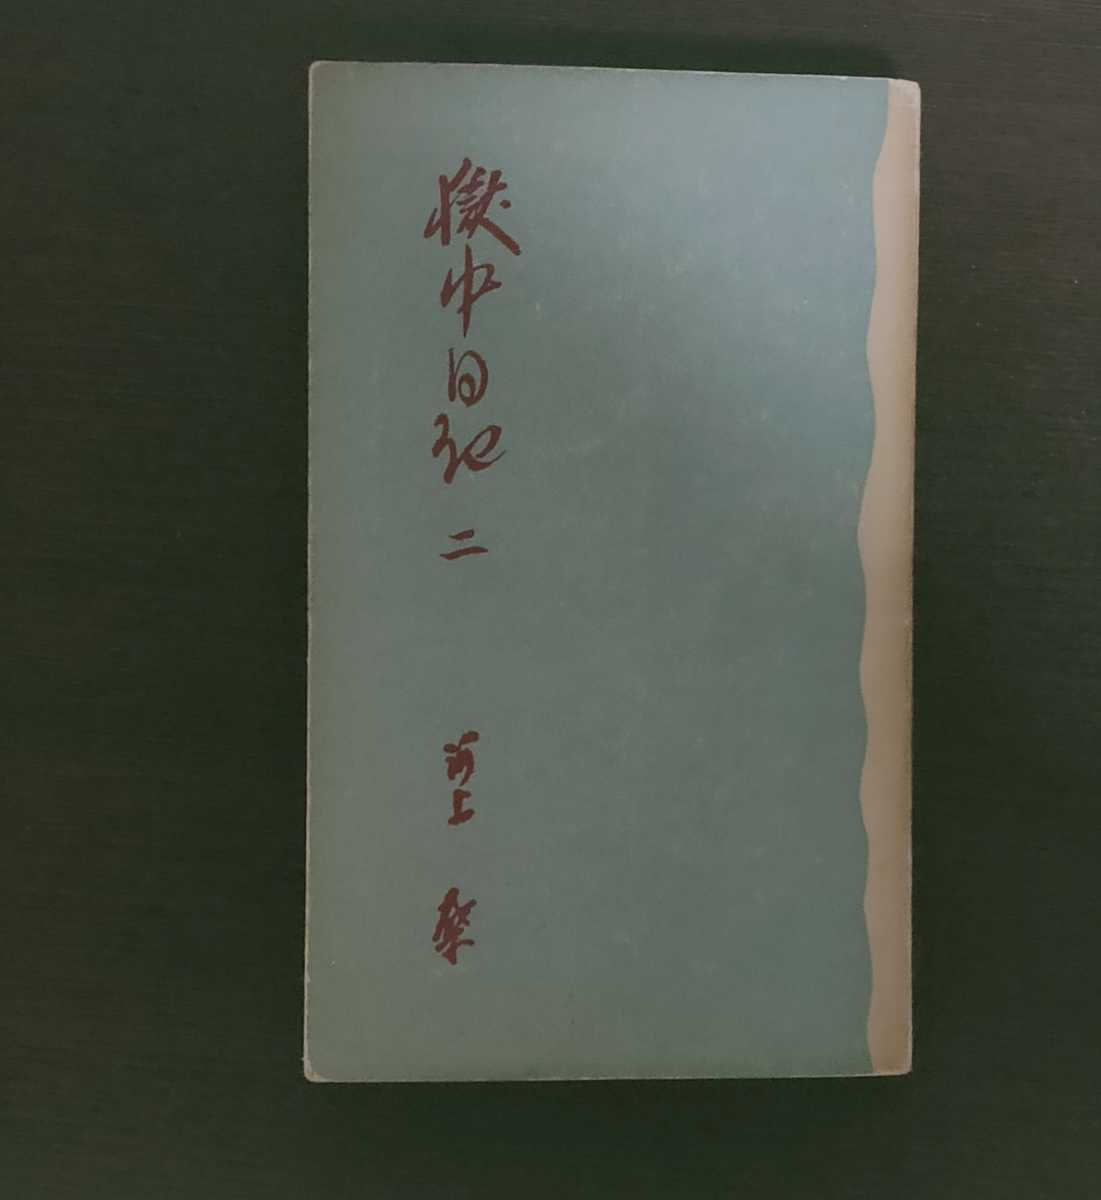 獄中日記 二 河上 肇